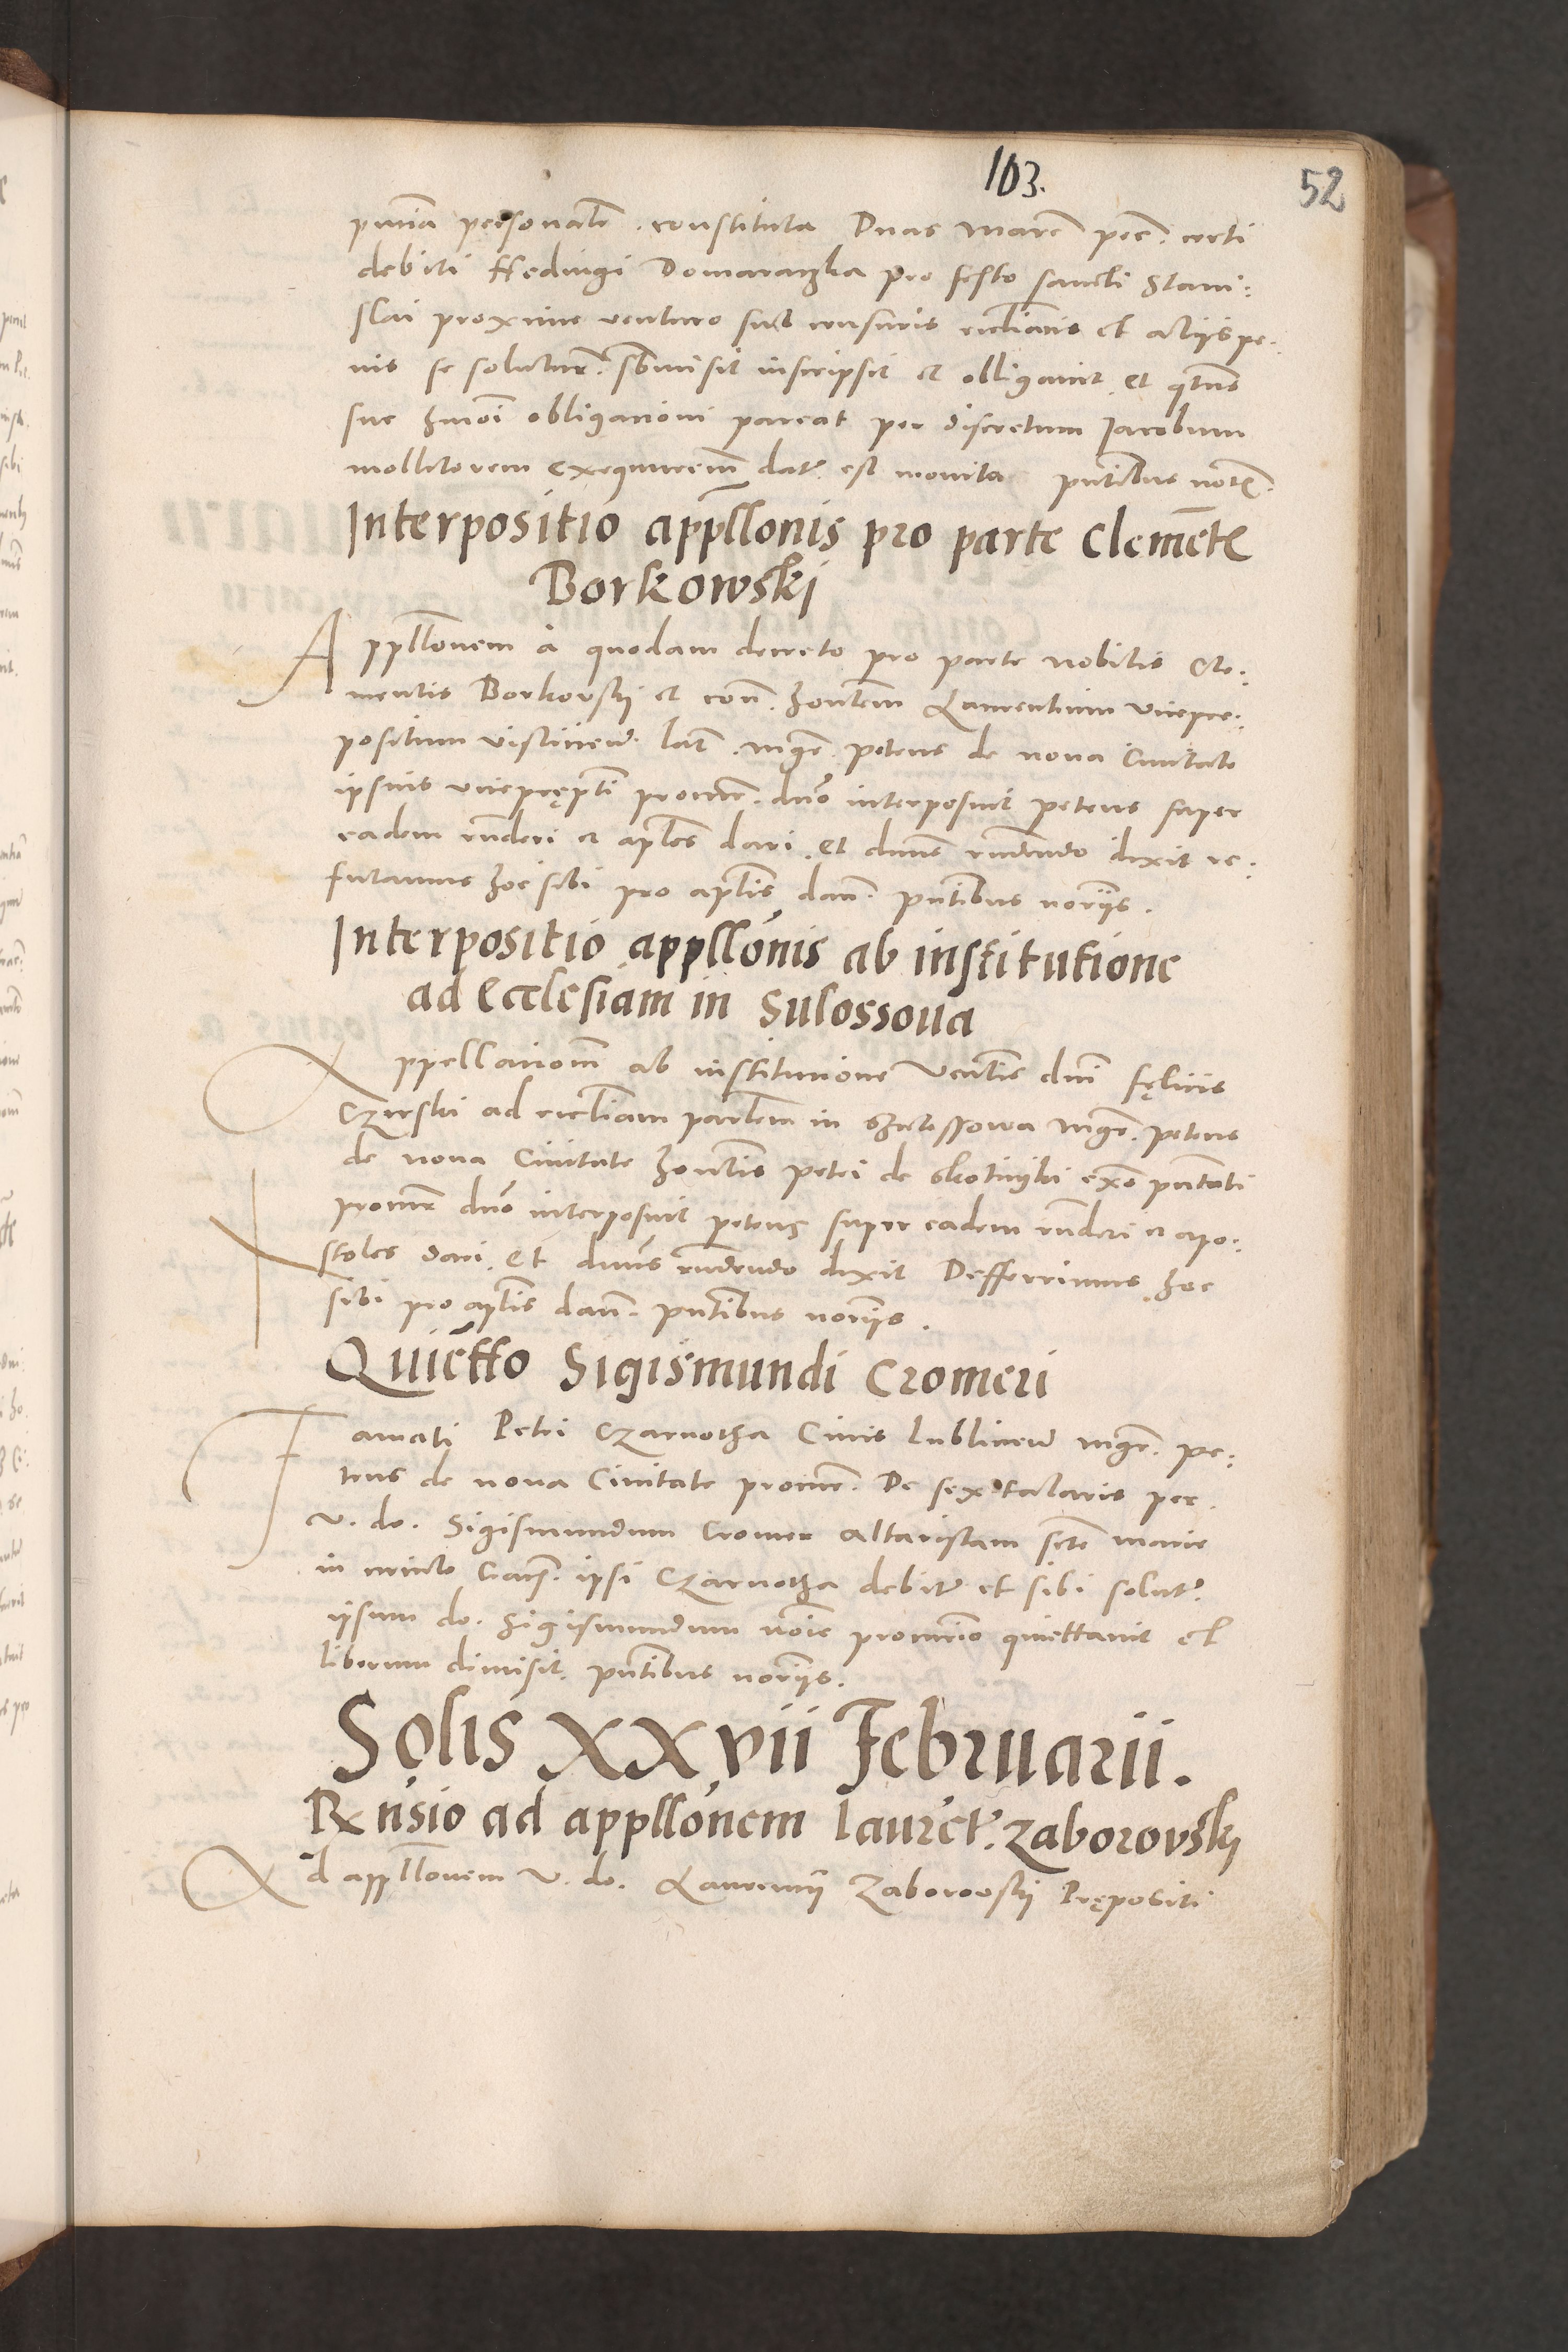 103.
52
pntia personalr. constituta Duas marc pec. certi
debiti Hedvigi Domaraczka pro festo sancti Stani:
slai proxime venturo sub censuris ecclīacis et aliis pe:
nis se soluturm. sbmisit inscripsit et obligavit et qtns
sue hmoi obligationi pareat per discretum Jacobum
mollitorem exequutrem dat. est monita pntibus notr.
Interpositio appllonis pro parte Clemetē
Borkowski
Appllonem a quodam decreto pro parte nobilis Cle:
mentis Borkovskj et con. hontem Laurentium vicepre:
positum vislicien lat. mgr. petrus de nova Civitate
ipsius viceprępti procurr. dno interposuit petens super
eadem rnderi et aplos dari. et dnus rndendo dixit re:
futamus hoc sibi pro aplis dan. pntibus norijs.
Interpositio appllonis ab institutione
ad Ecclesiam in Sulossova
Appellationm ab institutione venlis dni fęlicis
Czirski ad eccliam parlem in Szulossowa mgr. petrus
de nova Civitate hontis petri de Skotniki ex pntati
procurr dno interposuit petens super eadem rnderi et apo:
stolos dari. et dnus rndendo dixit Defferimus hoc
sibi pro aplis dan. pntibus norijs.
Quietto Sigismundi Cromeri
Famati Petri Czarnotha Civis lublinen mgr. pe:
trus de nova Civitate procurr. De sex talaris per
v. do. Sigismundum Cromer Altaristam scte marie
in circulo Crac. ipsi Czarnotha debit. et sibi solut.
ipsum do. Sigismundum noie procurrio quiettavit et
liberum dimisit. pntibus norijs.
Solis XXVII Februarii.
Rx nsio ad appllonem laurēt. zaborovskj
Ad appllonem v. do. Laurentij Zaborovskj Prępositi